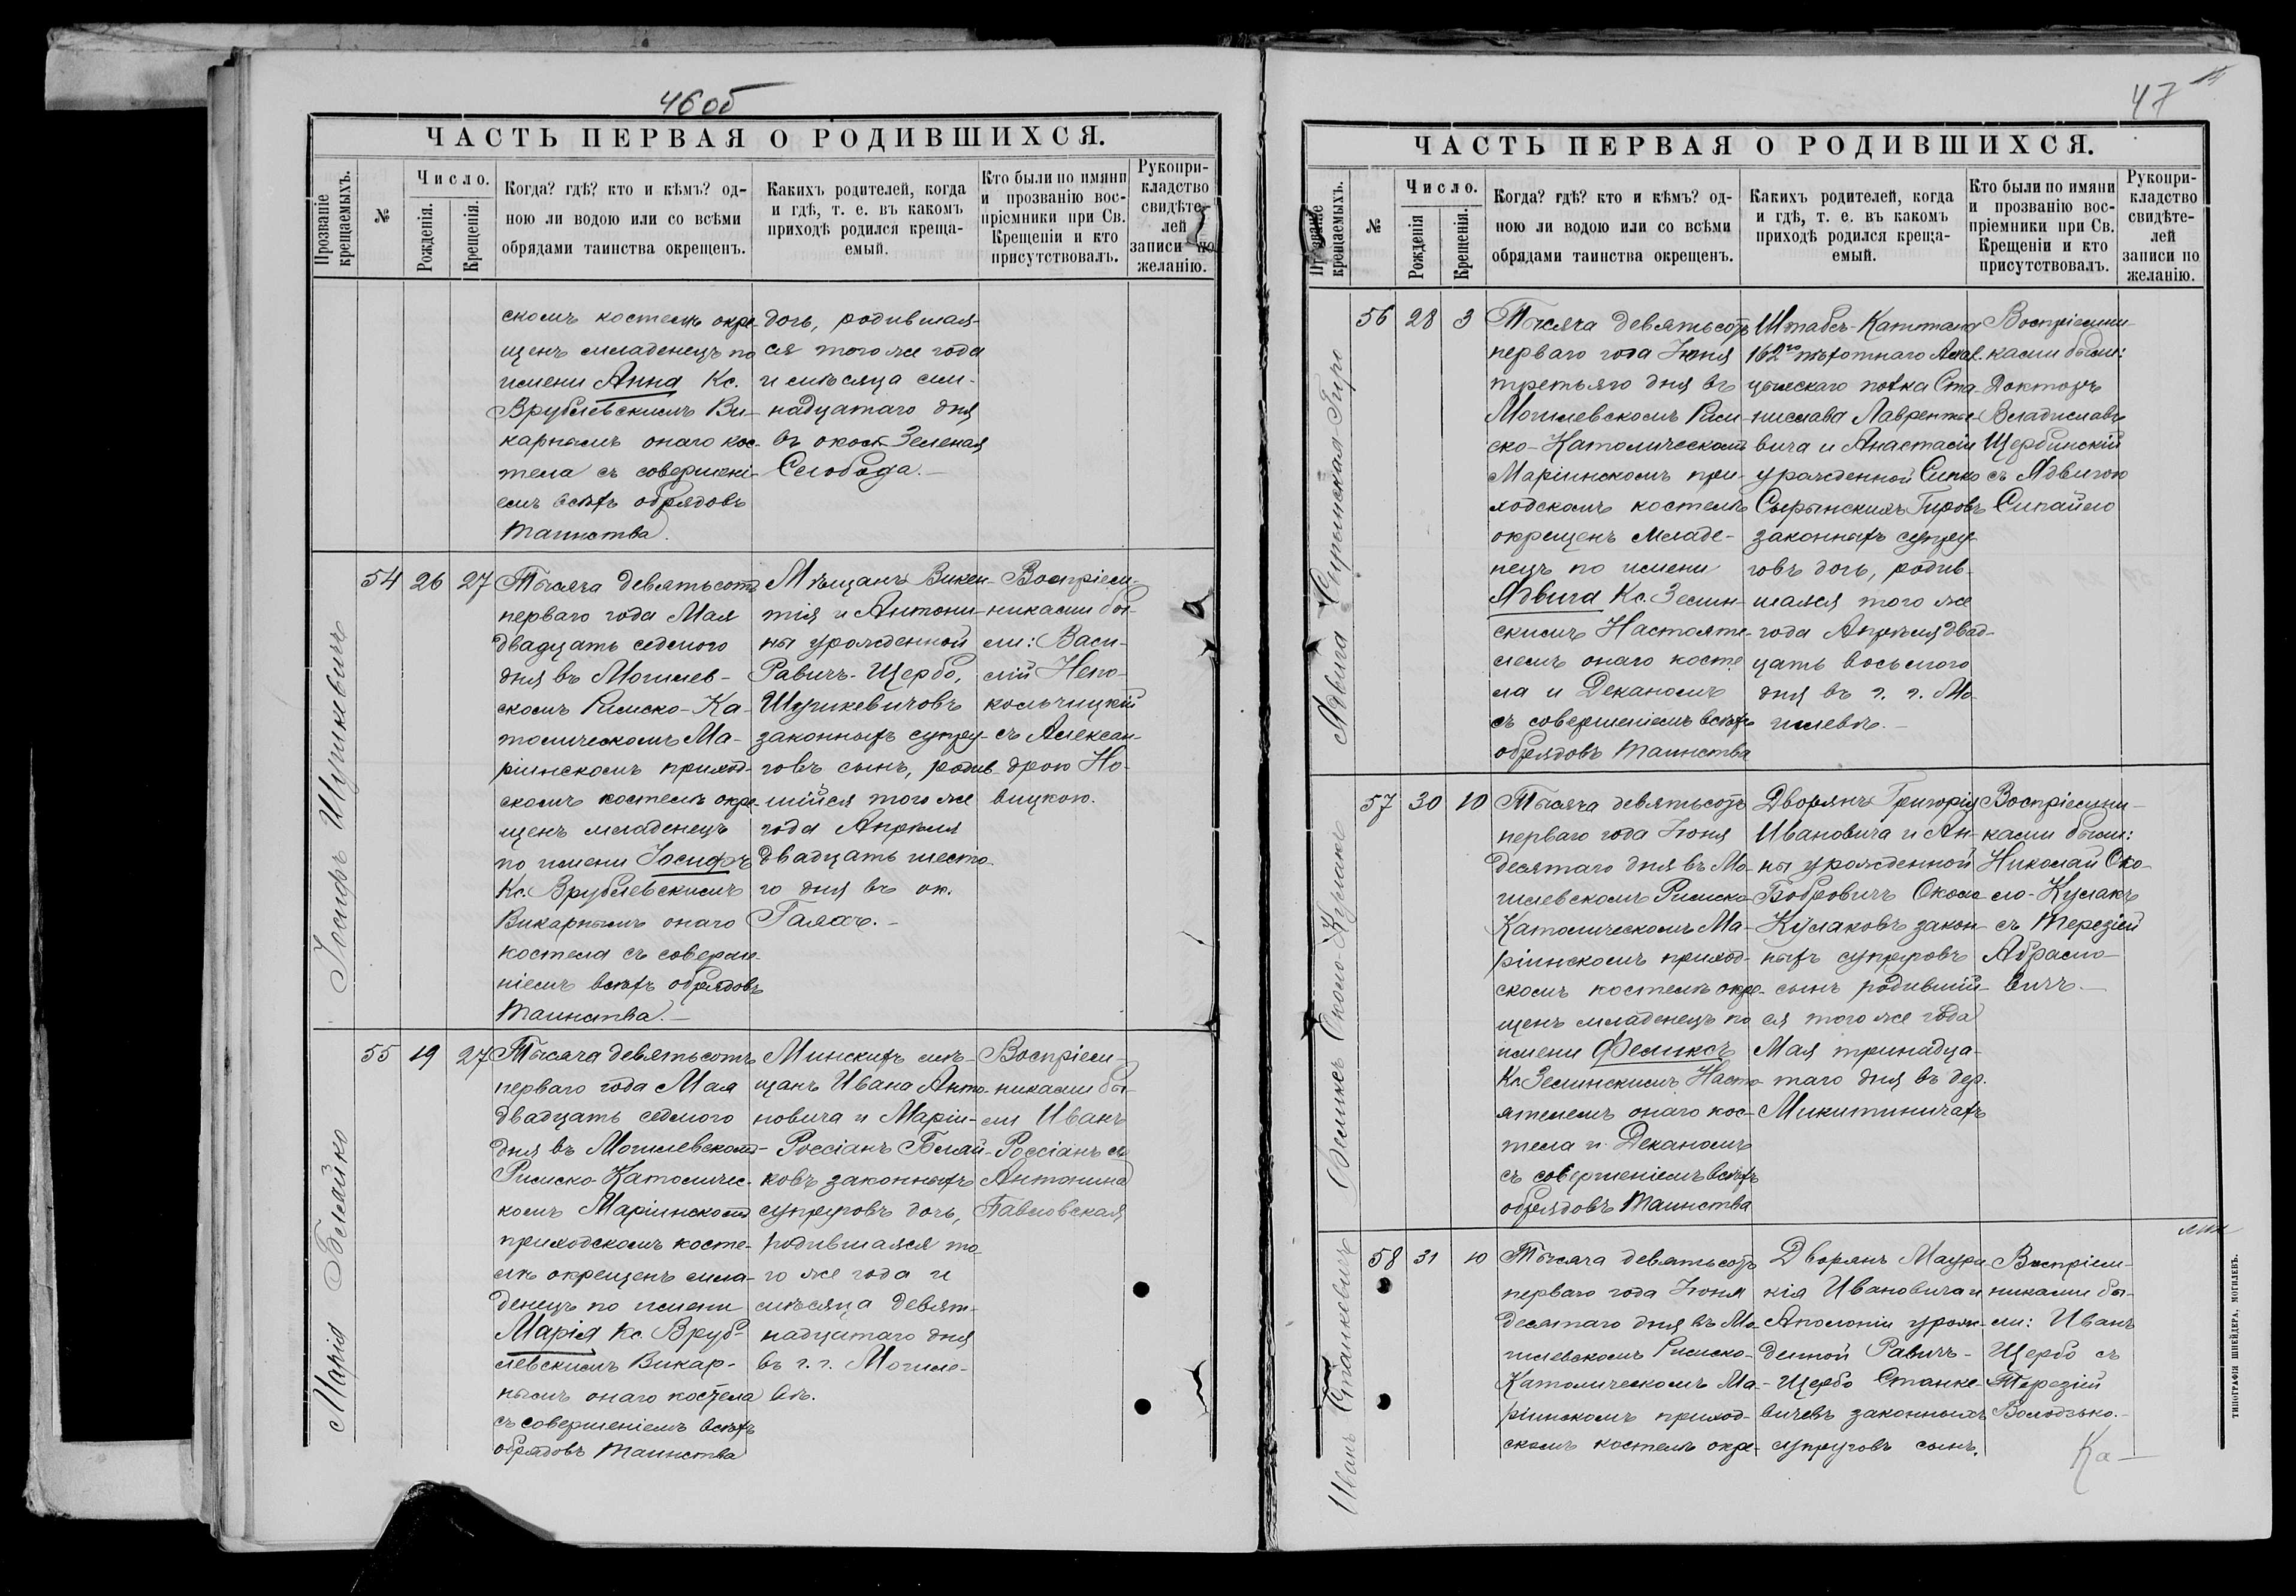 46об
ЧАСТЬ ПЕРВАЯ О РОДИВШИХСЯ.
Прозваніе крещаемыхъ.
№
Число.
Рожденія.
Крещенія.
Когда? гдѣ? кто и кѣмъ? од-
ною ли водою или со всѣми
обрядами таинства окрещенъ.
Какихъ родителей, когда
и гдѣ, т. е. въ какомъ
приходѣ родился креща-
емый.
Кто были по имяни
и прозванію вос-
пріемники при Св.
Крещеніи и кто
присутствовалъ.
Рукопри-
кладство
свидѣте-
лей
записи по
желанію.
скомъ костелѣ окре-
щенъ младенецъ по
имени Анна Кс.
Врублевскимъ Ви-
карнымъ онаго кос-
тела съ совершені-
емъ всѣхъ обрядовъ
Таинства.
дочь, родившая-
ся того же года
и мѣсяца сем-
надцатаго дня
въ окол. Зеленая
Слобода.-
Іосифъ Шушкевичъ
54 26 27
Тысяча девятьсотъ
перваго года Мая
двадцать седмого
дня въ Могилев-
скомъ Римско-Ка-
толическомъ Ма-
ріинскомъ приход-
скомъ костелѣ окре-
щенъ младенецъ
по имени Іосифъ
Кс. Врублевскимъ
Викарнымъ онаго
костела съ соверше-
ніемъ всѣхъ обрядовъ
Таинства.-
Мѣщанъ Викен-
тія и Антони-
ны урожденной
Равичъ-Щербо,
Шушкевичовъ
законныхъ супру-
говъ сынъ, родив-
шійся того же
года Апрѣля
двадцать шесто-
го дня въ ок.
Воспріем-
никами бы-
ли: Васи-
лій Непо-
кольчицкій
съ Алексан-
дрою Но-
вицкою.
Марія Блайко
55 19 27
Тысяча девятьсотъ
перваго года Мая
двадцать седмого
дня въ Могилевскомъ
Римско-Католичес-
комъ Маріинскомъ
приходскомъ косте-
лѣ окрещенъ мла-
денецъ по имени
Марія Кс. Вруб-
левскимъ Викар-
нымъ онаго костела
съ совершеніемъ всѣхъ
обрядовъ Таинства
Минскихъ мѣ-
щанъ Ивана Анто-
новича и Маріи-
Россіанъ Блай-
ковъ законныхъ
супруговъ дочь,
родившаяся то-
го же года и
мѣсяца девят-
надцатаго дня
въ г. г. Могиле-
вѣ.
Воспріем-
никами бы-
ли Иванъ
Россіанъ съ
Антонина
Павловская
47
ЧАСТЬ ПЕРВАЯ О РОДИВШИХСЯ.
Прозваніе крещаемыхъ.
№
Число.
Рожденія
Крещенія.
Когда? гдѣ? кто и кѣмъ? од-
ною ли водою или со всѣми
обрядами таинства окрещенъ.
Какихъ родителей, когда
и гдѣ, т. е. въ какомъ
приходѣ родился креща-
емый.
Кто были по имяни
и прозванію вос-
пріемники при Св.
Крещеніи и кто
присутствовалъ.
Рукопри-
кладство
свидѣте-
лей
записи по
желанію.
56 28 3
Тысяча девятьсотъ
перваго года Іюня
третьяго дня въ
Могилевскомъ Рим-
ско-Католическомъ
Маріинскомъ при-
ходскомъ костелѣ
окрещенъ младе-
нецъ по имени
Ядвига Кс. Зелин-
скимъ Настояте-
лемъ онаго косте-
ла и Деканомъ
съ совершеніемъ всѣхъ
обрядовъ Таинства
Штабсъ-Капитана
162го пѣхотнаго Ахал-
цыхскаго полка Ста-
нислава Лавренть-
вича и Анастасіи
урожденной
законныхъ супру-
говъ дочь, родив-
шаяся того же
года Апрѣля двад-
цать восьмого
дня въ г. г. Мо-
гилевѣ.-
Воспріемни-
ками были:
Докторъ
Владиславъ
Щербинскій
съ Ядвигою
Сипайло
Феликсъ Около-Кулакъ
57 30 10
Тысяча девятьсотъ
перваго года Іюня
десятаго дня въ Мо-
гилевскомъ Римско-
Католическомъ Ма-
ріинскомъ приход-
скомъ костелѣ окре-
щенъ младенецъ по
имени Феликсъ
Кс. Зелинскимъ Насто-
ятелемъ онаго кос-
тела и Деканомъ
съ совершеніемъ всѣхъ
обрядовъ Таинства
Дворянъ Григорія
Ивановича и Ан-
ны урожденной
Бобровичъ Около
Кулаковъ закон-
ныхъ супруговъ
сынъ родившій-
ся того же года
Мая тринадца-
таго дня въ дер.
Микитиничахъ
Воспріемни-
ками были:
Николай Око-
ло-Кулакъ
съ Терезіей
Абрамо-
вичъ.-
Иванъ Станкевичъ
58 31 10
Тысяча девятьсотъ
перваго года Іюня
десятаго дня въ Мо-
гилевскомъ Римско-
Католическомъ Ма-
ріинскомъ приход-
скомъ костелѣ окре-
Дворянъ Маури-
кія Ивановича и
Аполоніи урож-
денной Равичъ-
Щербо Станке-
вичевъ законныхъ
супруговъ сынъ,
Воспріем-
никами бы-
ли: Иванъ
Щербо съ
Терезіей
Володзько.-
Ка-
ТИПОГРАФІЯ ШНЕЙДЕРА, МОГИЛЕВЪ.